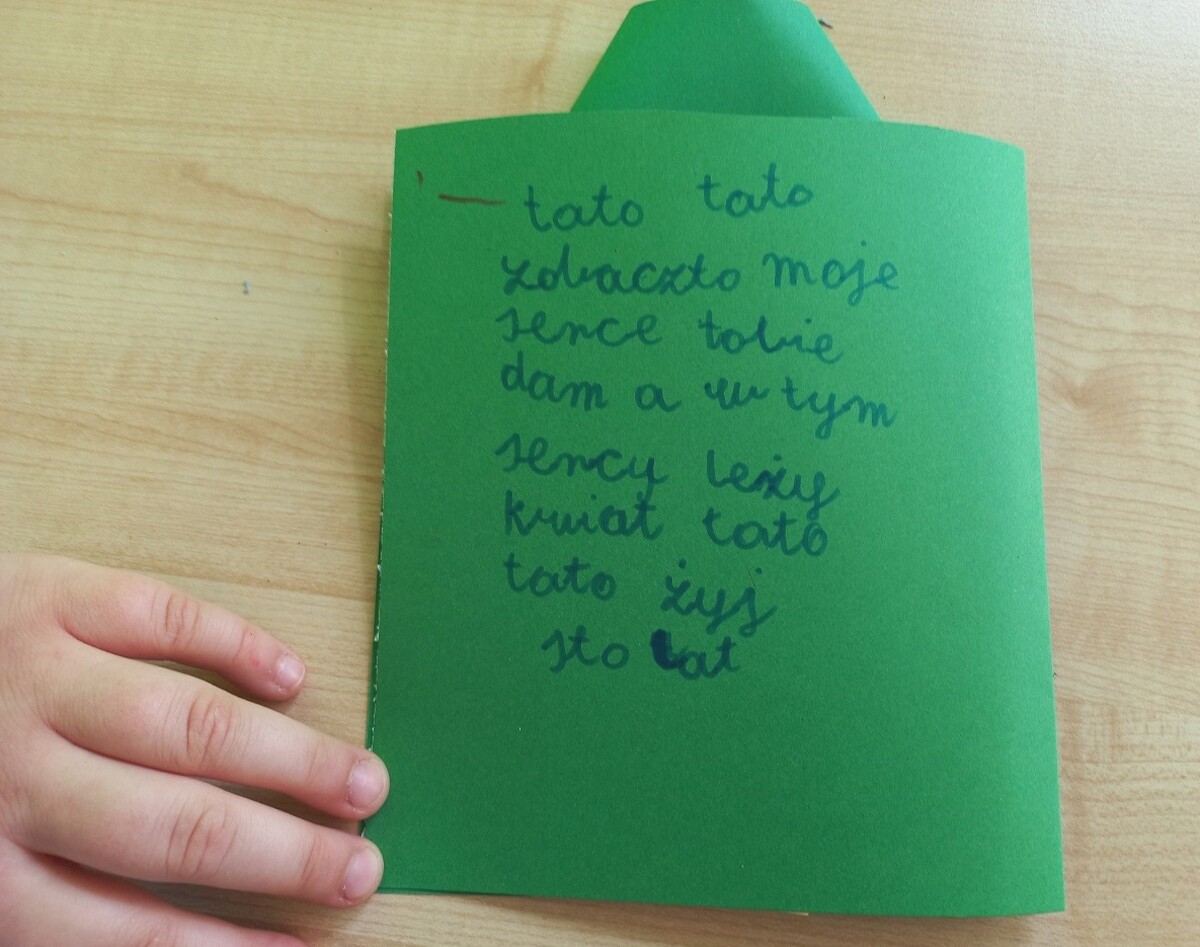 — tato tato
zobaczto moje
serce tobie
dam a w tym
sercu leży
kwiat tato
tato żyj
sto lat